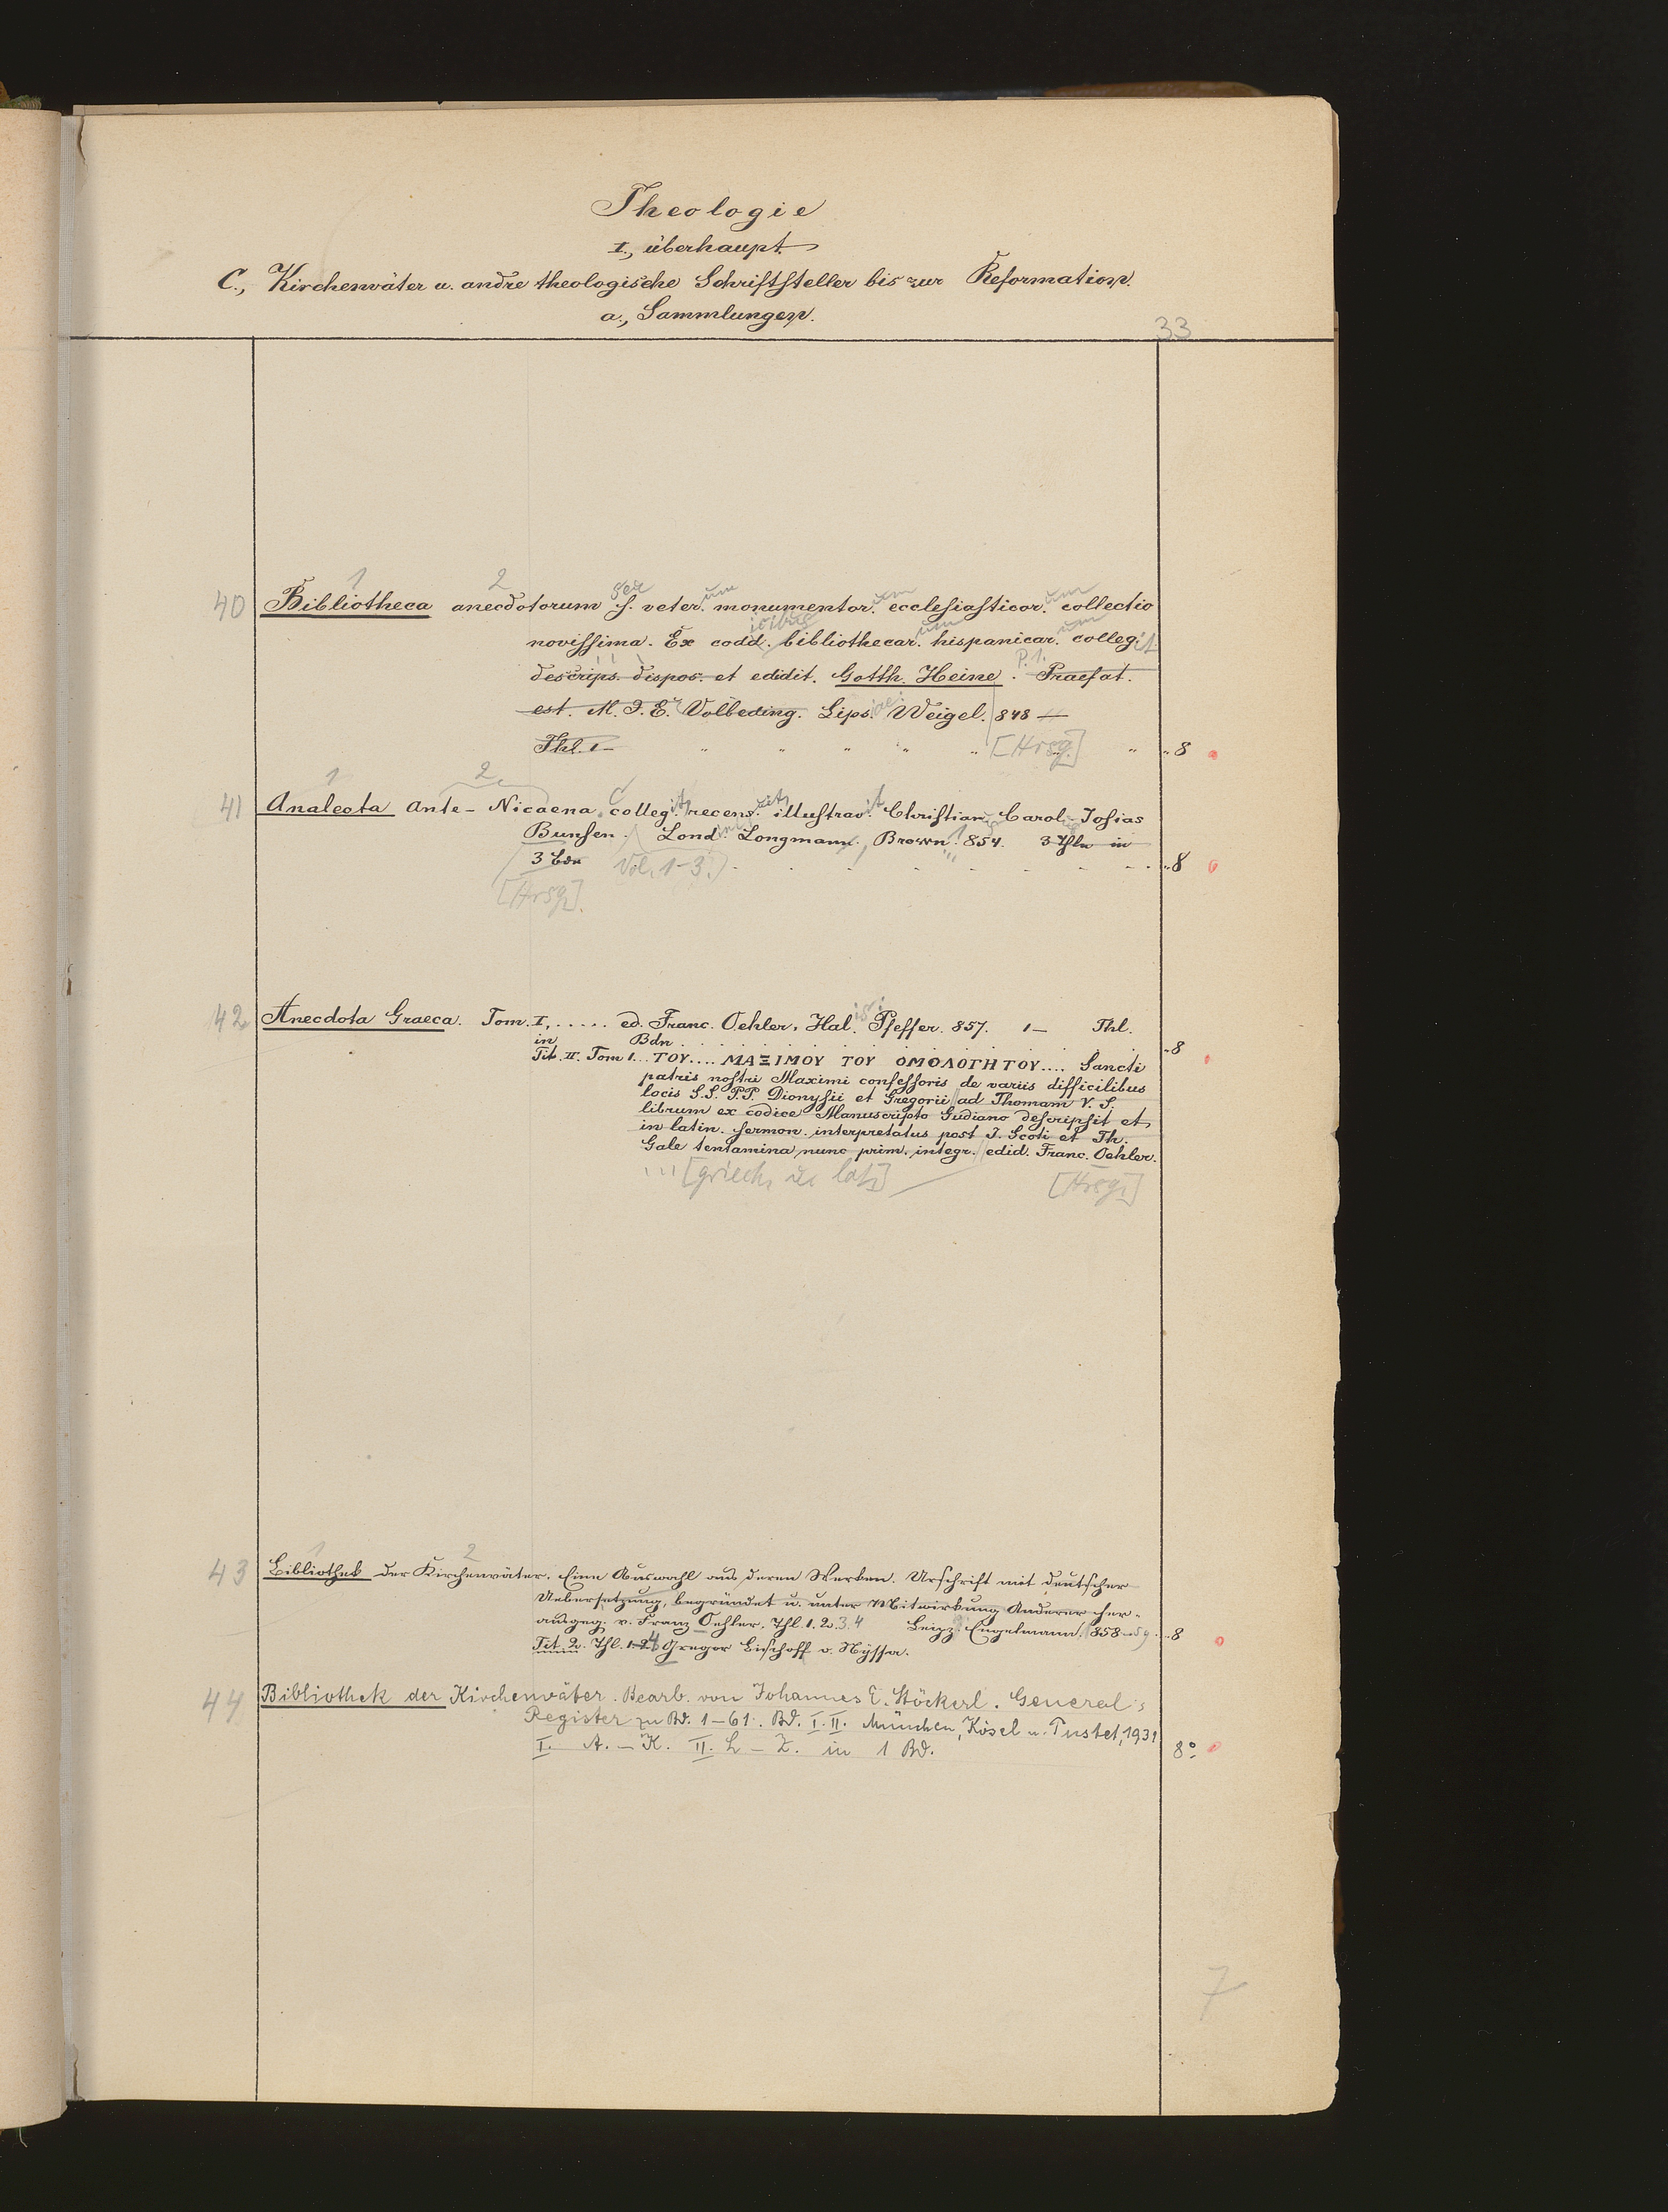 Theologie
I., überhaupt.
C., Kirchenväter u. andre theologische Schriftsteller bis zur Reformation.
a., Sammlungen.
33
1 2 seu um um um
40 Bibliotheca anecdotorum s. veter. monumentor. ecclesiasticor. collectio
icibus um um
novissima. Ex codd. bibliothecar. hispanicar. collegit
P. 1.
descrips. dispos. et edidit. Gotth. Heine. Praefat.
est. M. J. E. Volbeding. Lips. Weigel. 848 —
Thl. 1 — " " " " " [Hrsg.] " " 8
1 2
41 Analecta Ante-Nicaena. collegit, recens. illustrav. Christian. Carol. Josias
Bunsen. Lond. Longmann, Brown. 854. 3 Thle in
3 Bdn Vol. 1-3.) " 8
[Hrsg.].
42 Anecdota Graeca. Tom. I, ..... ed. Franc. Oehler, Hal. Pfeffer. 857. 1 — Thl.
in Bdn . . . . . . . . . 8
Tit. II. Tom 1... ΤΟΥ.... ΜΑΞΙΜΟΥ ΤΟΥ ΟΜΟΛΟΓΗΤΟΥ.... Sancti
patris nostri Maximi confessoris de variis difficilibus
locis S.S. P.P. Dionysii et Gregorii ad Thomam V. S.
librum ex codice Manuscripto Gudiano descripsit et
in latin. sermon. interpretatus post J. Scoti et Th.
Gale tentamina nunc prim. integr. edid. Franc. Oehler.
... [griech. u. lat.] [Hrsg.]
1 2
43 Bibliothek der Kirchenväter. Eine Auswahl aus deren Werken. Urschrift mit deutscher
Uebersetzung, begründet u. unter Mitwirkung Anderer her-
ausgeg. v. Franz Oehler. Thl. 1. 2. 3. 4 Leipz. Engelmann. 858-59 8
Tit. 2. Thl. 1-4 Gregor Bischoff v. Nyssa.
44 Bibliothek der Kirchenväter. Bearb. von Johannes E. Stöckerl. General-
Register zu Bd. 1-61. Bd. I. II. München, Kösel u. Pustet, 1931
I. A. - K. II. L - Z. in 1 Bd. 8°
7